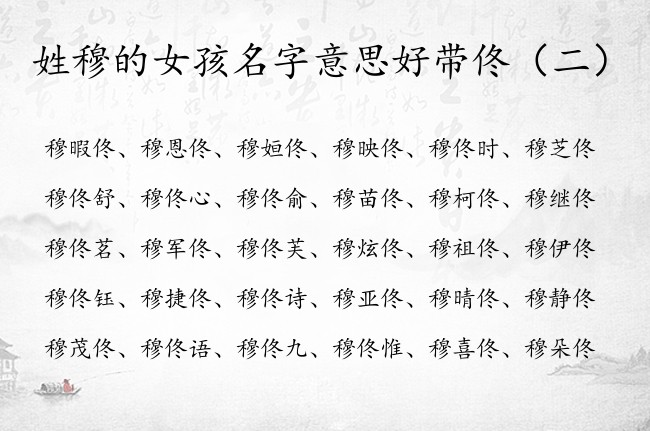 姓穆的女孩名字意思好带佟（二）
穆暇佟、穆恩佟、穆姮佟、穆映佟、穆佟时、穆芝佟
穆佟舒、穆佟心、穆佟俞、穆苗佟、穆柯佟、穆继佟
穆佟茗、穆军佟、穆佟芙、穆炫佟、穆祖佟、穆伊佟
穆佟钰、穆捷佟、穆佟诗、穆亚佟、穆晴佟、穆静佟
穆茂佟、穆佟语、穆佟九、穆佟惟、穆喜佟、穆朵佟